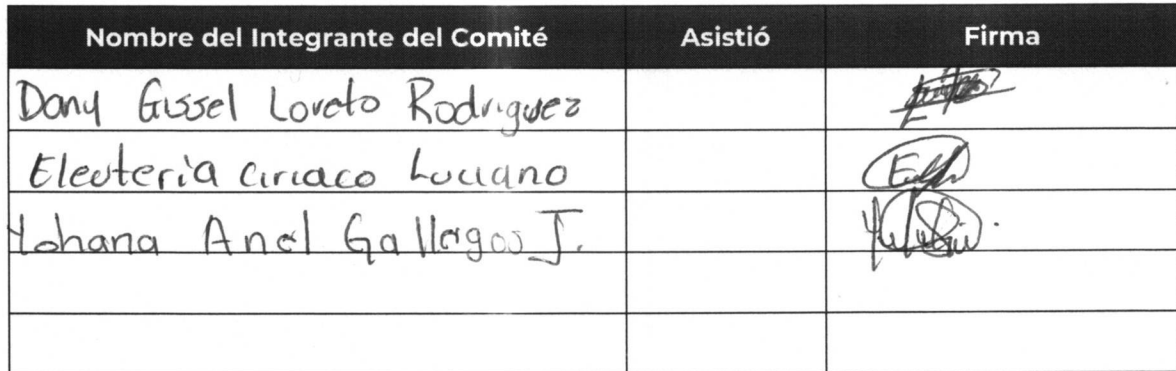 Nombre del Integrante del Comité Asistió Firma
Dany Gissel Loreto Rodriguez
Eleuteria Ciriaco Luciano
Yohana Anel Gallegos J.